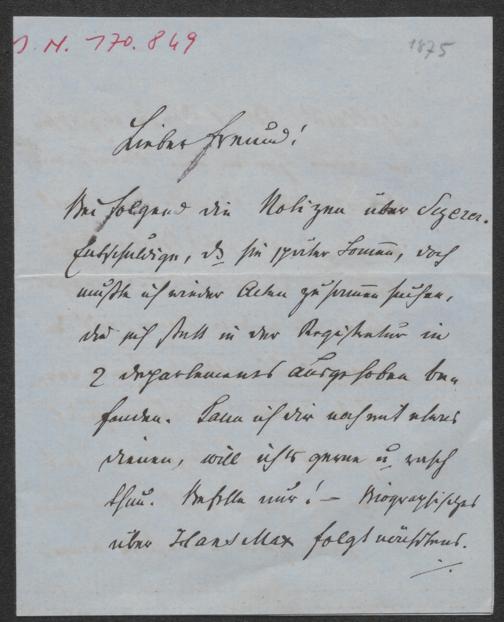 I. N. 170.849
1875
Lieber Freund!
Beifolgend die Notizen über
Entschuldige, dß sie später kom̅en, doch
mußte ich wieder Acten zusam̅en suchen,
die sich statt in der Registratur in
2 departements ausgehoben be-
fanden. Kann ich dir noch mit etwas
dienen, will ich's gerne u. rasch
thun. Befehle nur! – Biographisches
über Hans Max folgt nächstens.